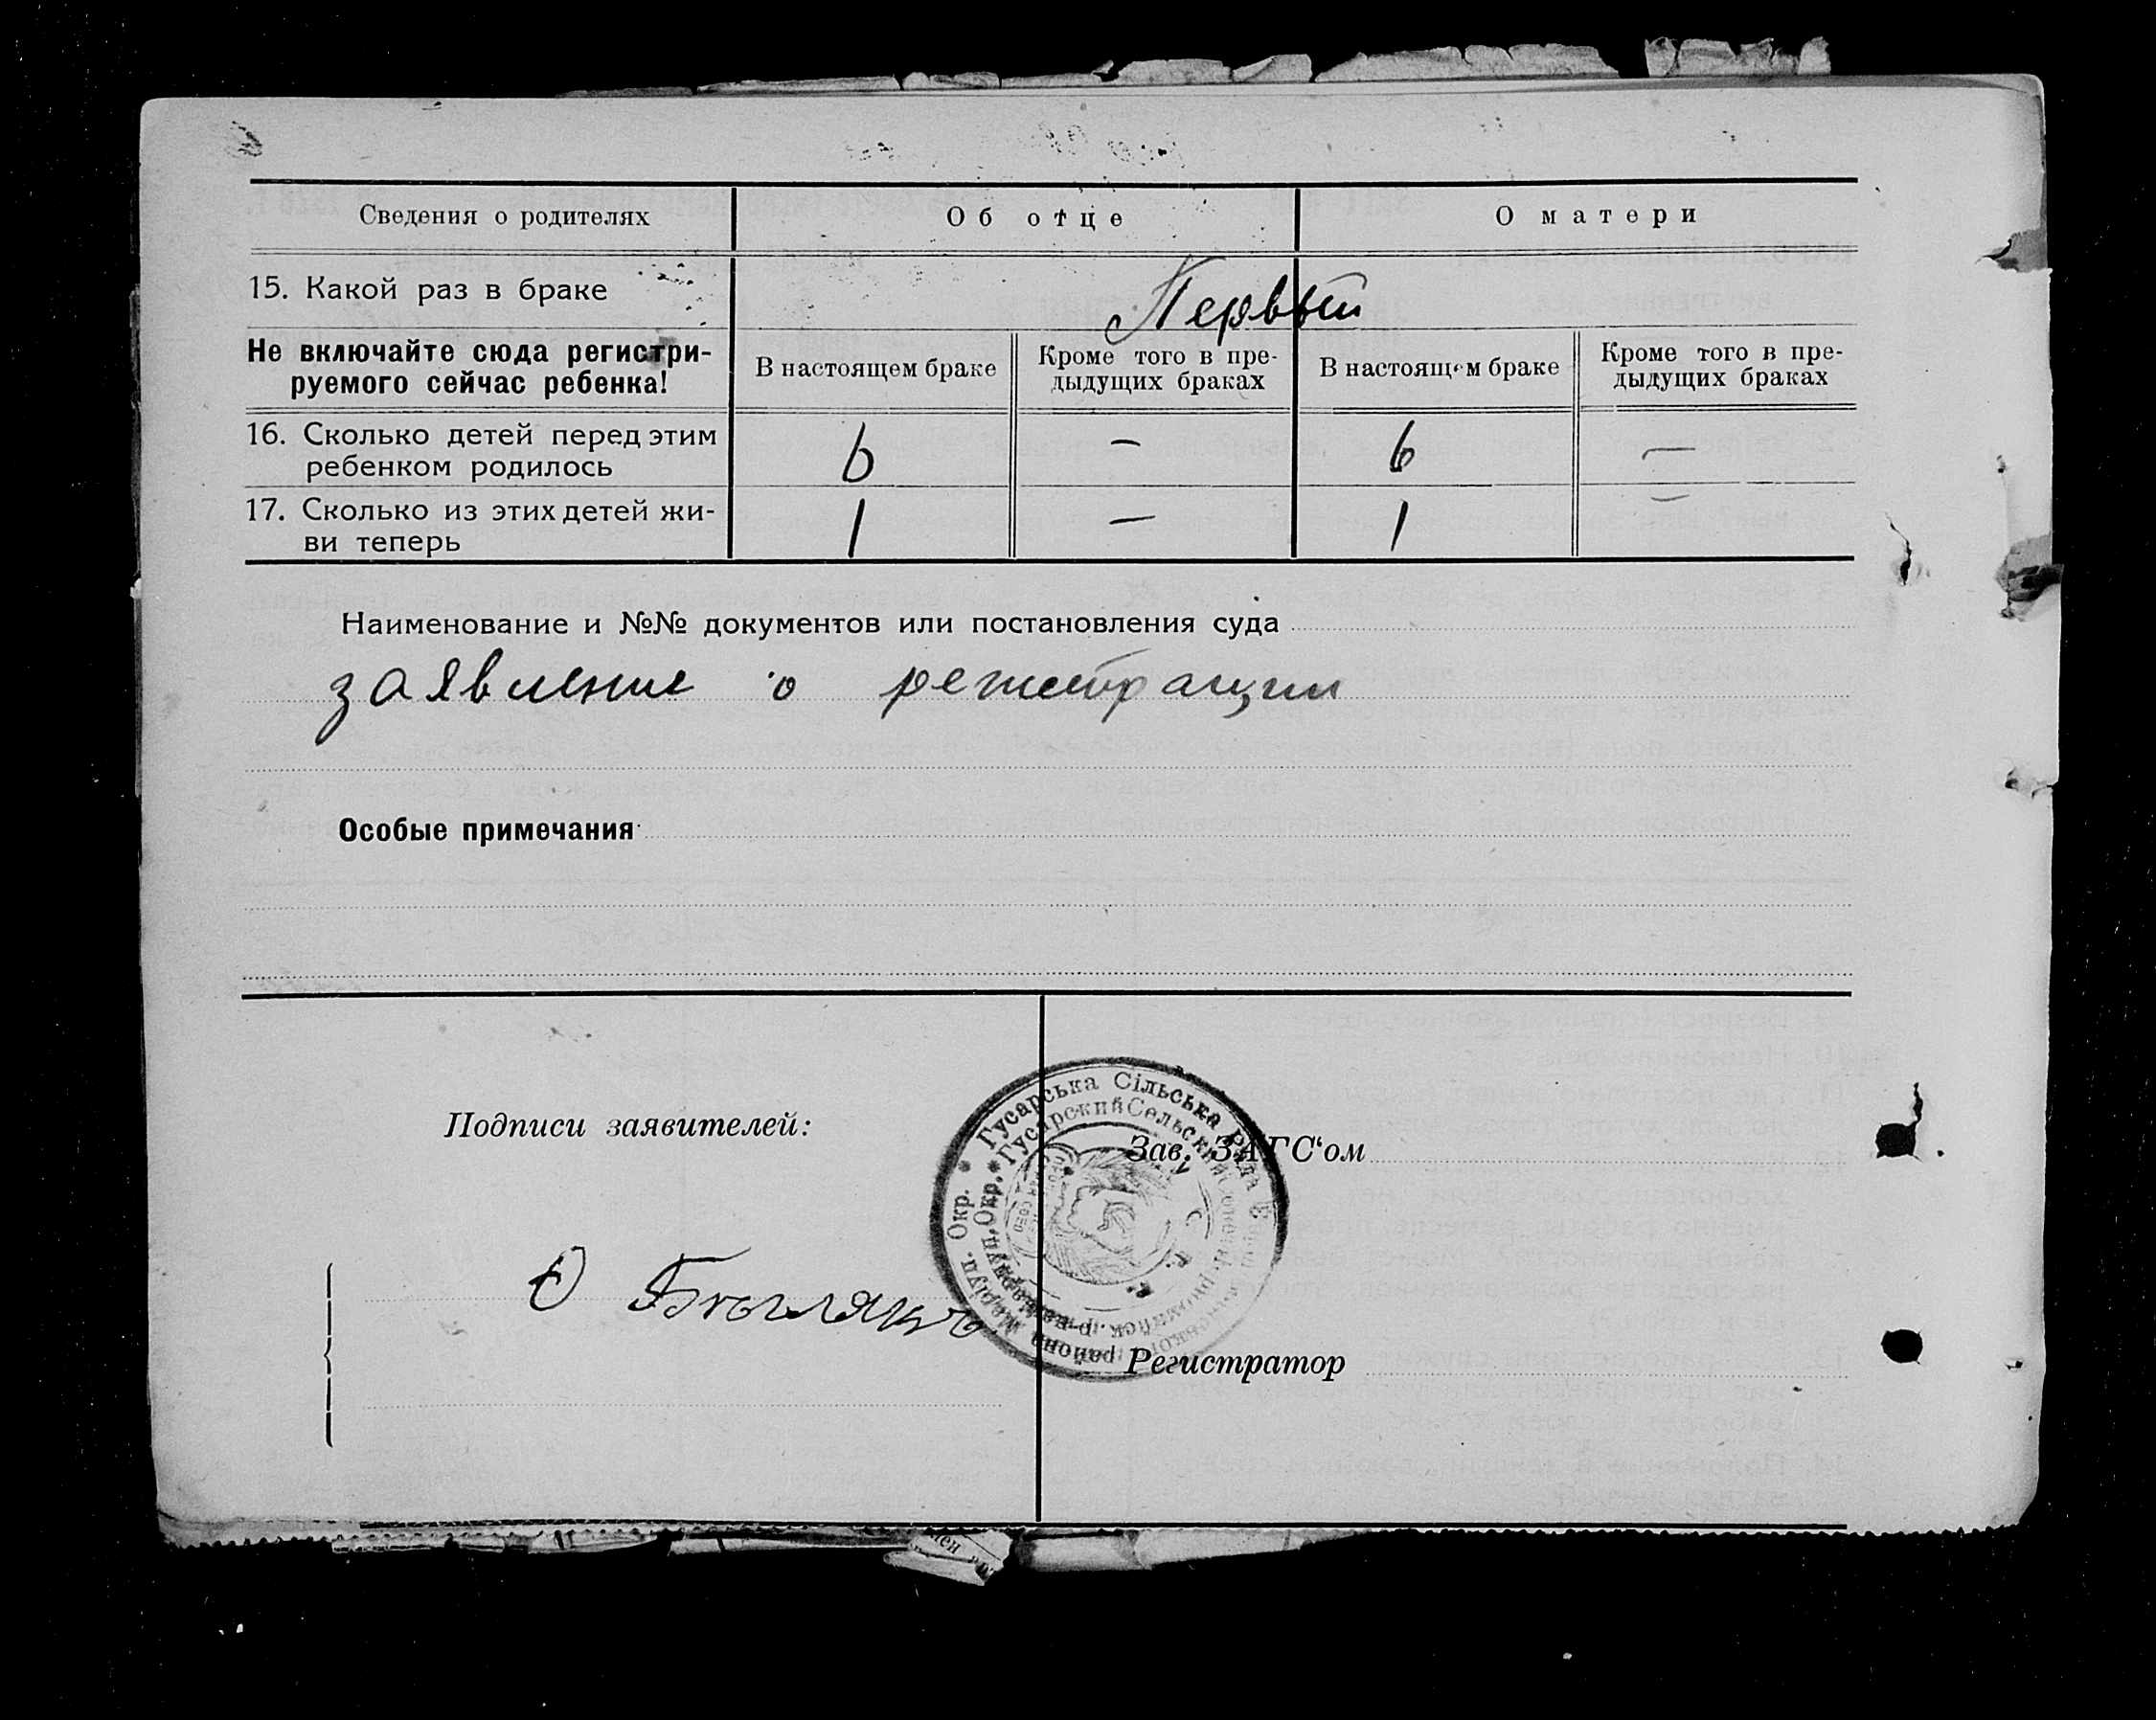 Сведения о родителях
Об отце
О матери
15. Какой раз в браке
Первый
Не включайте сюда регистри-
руемого сейчас ребенка!
В настоящем браке
Кроме того в пре-
дыдущих браках
В настоящем браке
Кроме того в пре-
дыдущих браках
16. Сколько детей перед этим
ребенком родилось
6
—
6
—
17. Сколько из этих детей жи-
ви теперь
1
—
1
—
Наименование и №№ документов или постановления суда
заявление о регистрации
Особые примечания
Подписи заявителей:
Зав. ЗАГС‘ом
Регистратор
Гусарська Сільська Рада
района Маріуп. Окр.
Гусарский Сельский